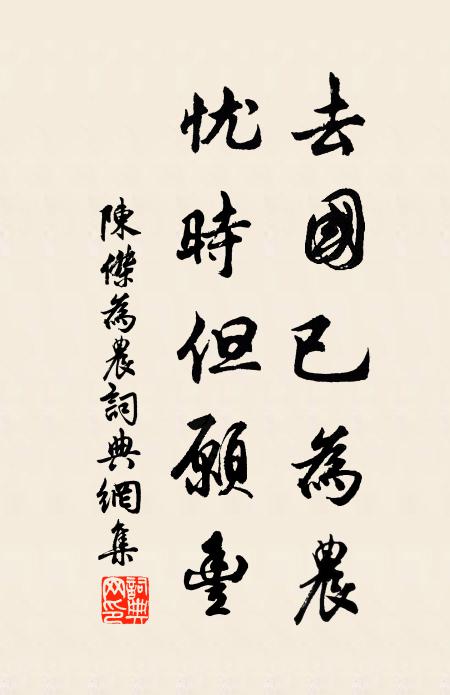 去國已為農
忧時但願豐
陳傑為農詞典網集
詞典网印